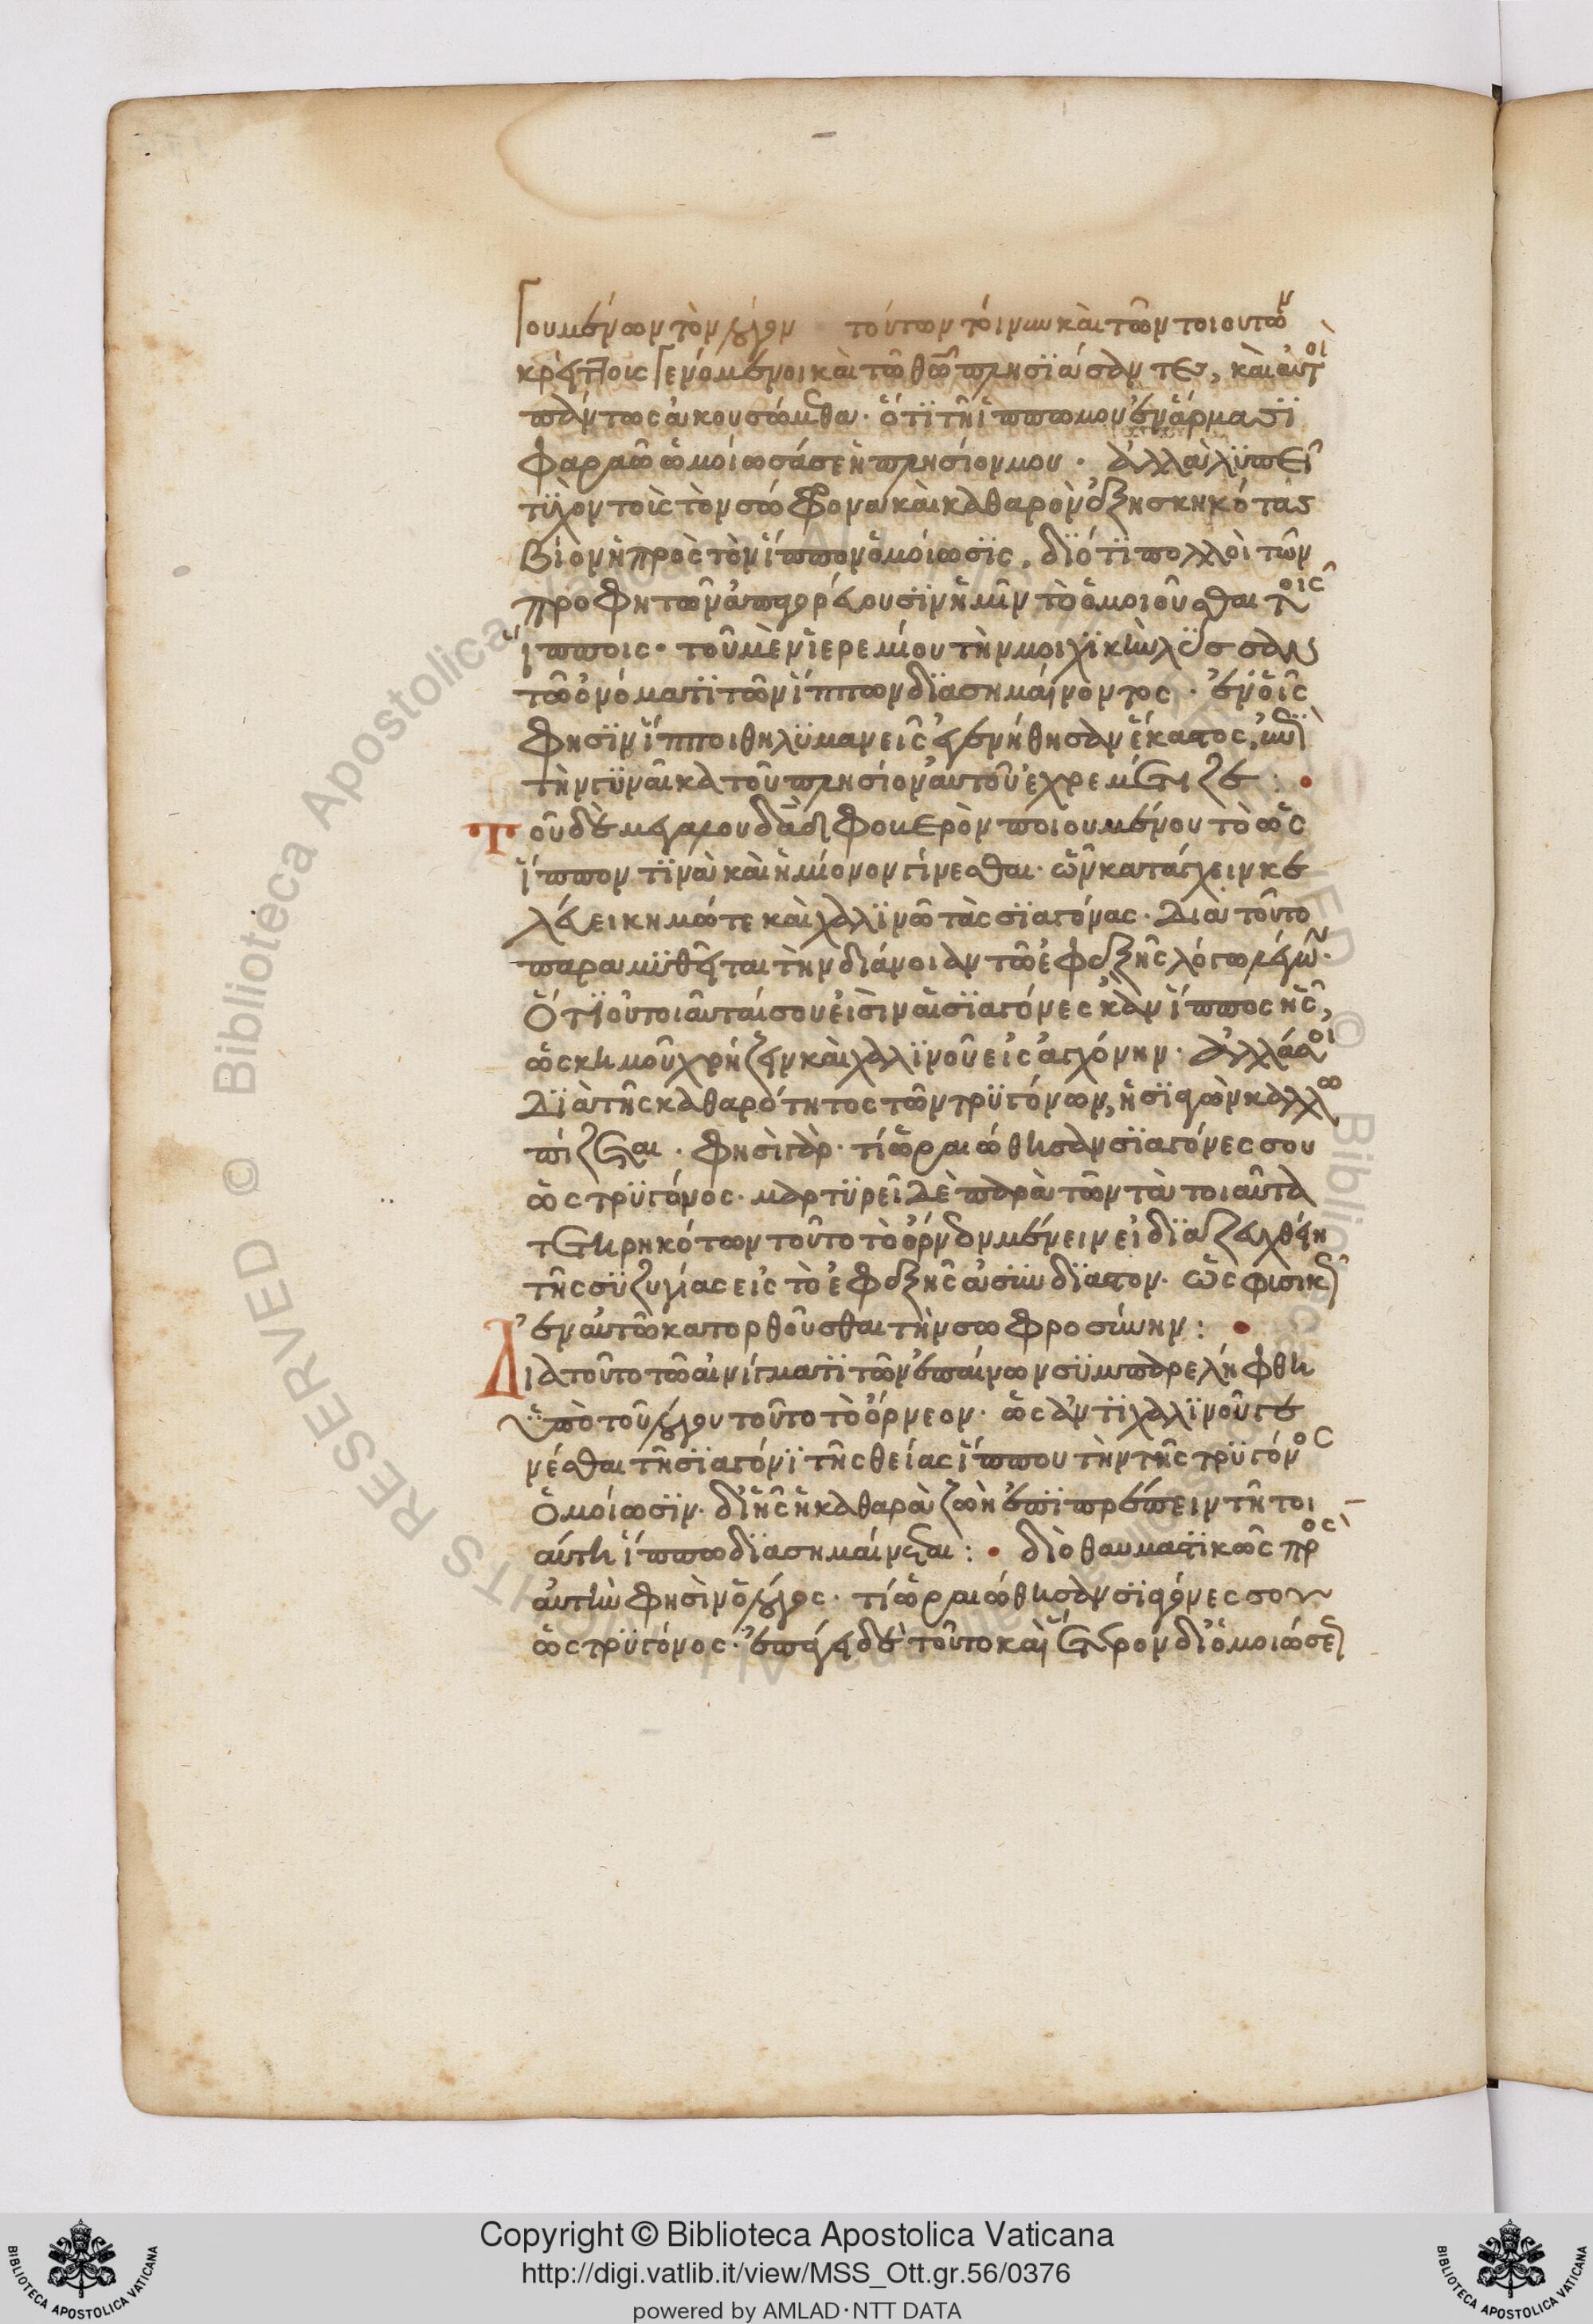 γουμένων τὸν λόγον τούτων τοίνυν καὶ τῶν τοιούτων
κρείττοις γενόμενοι καὶ τῶ θεῶ πλησϊάσαντες, καὶ αὐτοὶ
πάντως ἀκουσώμεθα· ὅτϊ τῆ ἵππω μου ἐν ἅρμασϊ
φαραὼ ὡμοίωσά σε ἡ πλησίον μου · ἀλλὰ λϋπεῖ
τϋχὸν τοὶς τὸν σώφρονα καὶ καθαρὸν ἐξησκηκότας
βίον ἡ πρὸς τὸν ἵππον ὁμοίωσϊς, δϊότϊ πολλοὶ τῶν
προφητῶν ἀπαγορεύουσϊν ἡμῖν τὸ ὁμοιοῦσθαι τοῖς
ἵπποις· τοῦ μὲν ϊερεμίου τὴν μοιχϊκὴν λύσσαν
τῶ ὀνόματϊ τῶν ἵππων δϊασημαίνοντος · ἐν οἷς
φησϊν ἵπποι θηλϋμανεῖς ἐγενήθησαν ἕκαστος, ἐπὶ
τὴν γϋναῖκα τοῦ πλησίον αὐτοῦ ἐχρεμέτιζε :
Τοῦ δὲ μεγάλου δᾱδ φοβερὸν ποιουμένου τὸ ὡς
ἵππον τϊνὰ καὶ ἡμίονον γίνεσθαι· ὧν κατάγχειν κε
λεύει κημῶ τε καὶ χαλϊνῶ τὰς σϊαγόνας· Διὰ τοῦτο
παραμϋθεῖται τὴν διάνοιαν τῶ ἐφεξῆς λόγω λέγων·
Ὅτϊ οὐ τοιαῦταί σου εἰσὶν αἱ σϊαγόνες κἂν ἵππος ἦς,
ὡς κημοῦ χρήζειν καὶ χαλϊνοῦ εἰς ἀγχόνην· ἀλλά σοι
Δϊὰ τῆς καθαρότητος τῶν τρϋγόνων, ἡ σϊαγὼν καλλω
πίζεται · φησὶ γὰρ· τί ὡραιώθησαν σϊαγόνες σου
ὡς τρϋγόνος· μαρτϋρεῖ Δὲ παρὰ τῶν τὰ τοιαῦτα
τετηρηκότων τοῦτο τὸ ὄρνεον μένειν εἰ δϊαζευχθείη
τῆς σϋζυγίας εἰς τὸ ἐφεξῆς ἀσϋνδϊαστον· ὡς φυσικῶς
ἐν αὐτῶ κατορθοῦσθαι τὴν σωφροσύνην :
Διὰ τοῦτο τῶ αἰνίγματϊ τῶν ἐπαίνων σϋμπαρελήφθη
ϋπὸ τοῦ λόγου τοῦτο τὸ ὄρνεον· ὡς ἀντϊ χαλϊνοῦ γε
νέσθαι τῆ σϊαγόνϊ τῆς θείας ἵππου τὴν τῆς τρϋγόνος
Ὁμοίωσϊν· δι' ἧς ἡ καθαρὰ ζωὴ ἐπϊπρέπειν τῆ τοι
αύτη ἵππω δϊασημαίνεται : διὸ θαυμαστϊκῶς πρὸς
αὐτὴν φησὶν ὁ λόγος· τί ὡραιώθησαν σϊαγόνες σου
ὡς τρϋγόνος· ἐπάγει δὲ τοῦτο καὶ ἕτερον δι' ὁμοιώσεως
Copyright © Biblioteca Apostolica Vaticana
http://digi.vatlib.it/view/MSS_Ott.gr.56/0376
powered by AMLAD·NTT DATA